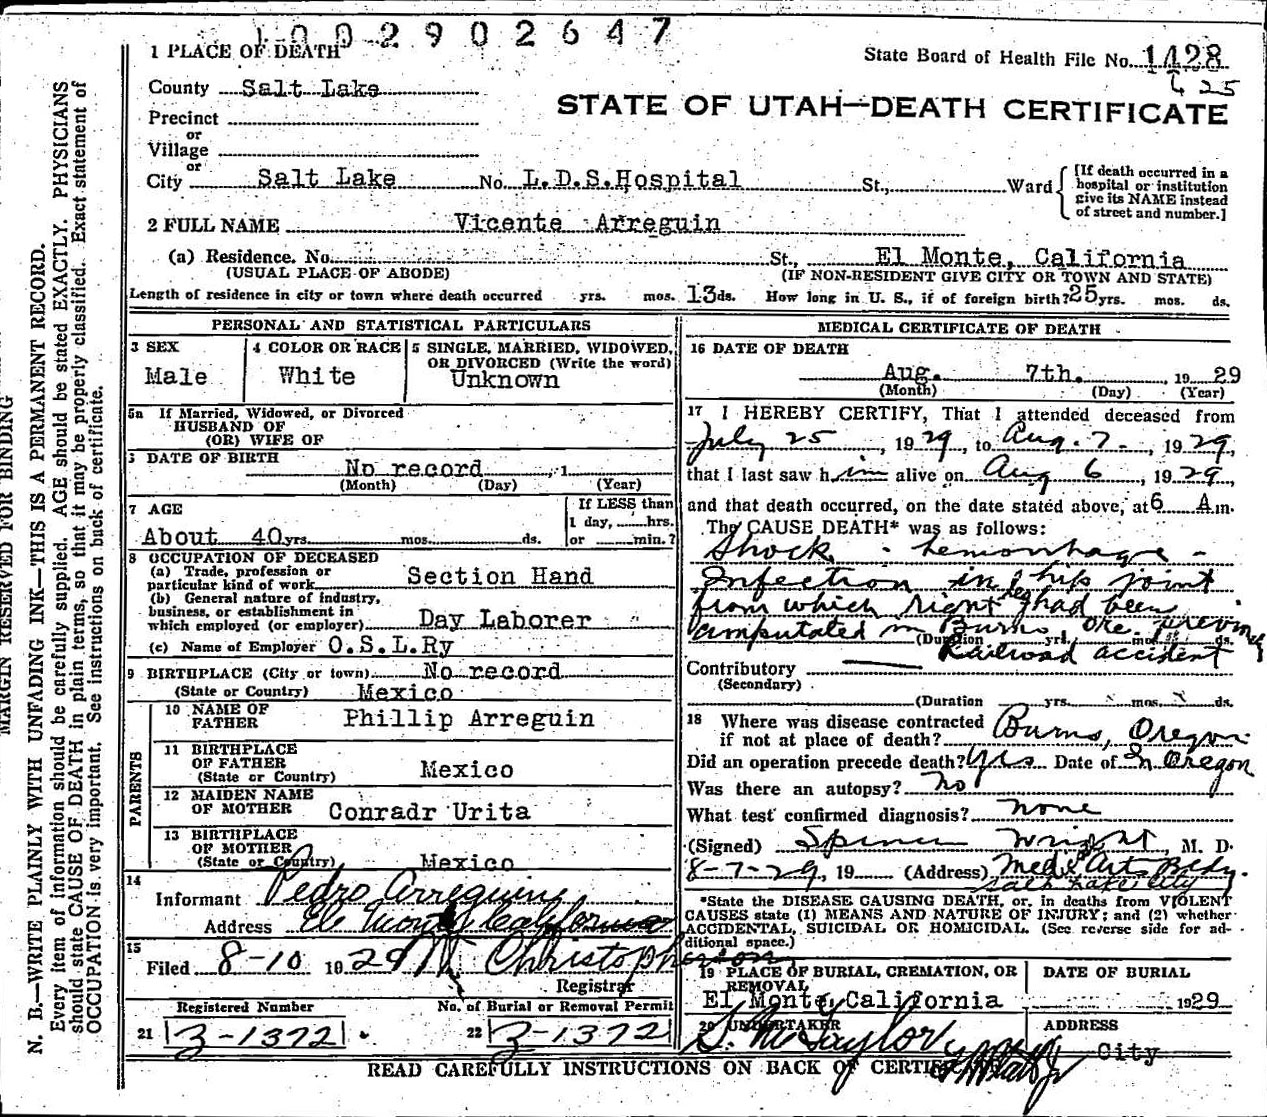 1002902647
1 PLACE OF DEATH
State Board of Health File No. 1428
425
County Salt Lake
STATE OF UTAH—DEATH CERTIFICATE
Precinct
or
Village
or
City Salt Lake No. L.D.S. Hospital St., Ward
[If death occurred in a
hospital or institution
give its NAME instead
of street and number.]
2 FULL NAME Vicente Arreguin
(a) Residence. No. St., El Monte, California
(USUAL PLACE OF ABODE) (IF NON-RESIDENT GIVE CITY OR TOWN AND STATE)
Length of residence in city or town where death occurred yrs. mos. 13 ds. How long in U. S., if of foreign birth? 25 yrs. mos. ds.
PERSONAL AND STATISTICAL PARTICULARS
3 SEX
Male
4 COLOR OR RACE
White
5 SINGLE, MARRIED, WIDOWED,
OR DIVORCED (Write the word)
Unknown
5a If Married, Widowed, or Divorced
HUSBAND OF
(OR) WIFE OF
DATE OF BIRTH
No record, 1
(Month) (Day) (Year)
7 AGE
About 40 yrs. mos. ds.
If LESS than
1 day, hrs.
or min.?
8 OCCUPATION OF DECEASED
(a) Trade, profession or
particular kind of work Section Hand
(b) General nature of industry,
business, or establishment in
which employed (or employer) Day Laborer
(c) Name of Employer O.S.L.Ry
9 BIRTHPLACE (City or town) No record
(State or Country) Mexico
PARENTS
10 NAME OF
FATHER Phillip Arreguin
11 BIRTHPLACE
OF FATHER
(State or Country) Mexico
12 MAIDEN NAME
OF MOTHER Conradr Urita
13 BIRTHPLACE
OF MOTHER
(State or Country) Mexico
14
Informant Pedro Arreguine
Address El Monte California
15
Filed 8-10 1929 Christopherson
Registrar
Registered Number No. of Burial or Removal Permit
21 3-1372 22 3-1372
MEDICAL CERTIFICATE OF DEATH
16 DATE OF DEATH
Aug. 7th., 1929
(Month) (Day) (Year)
17 I HEREBY CERTIFY, That I attended deceased from
July 25, 1929, to Aug. 7, 1929,
that I last saw him alive on Aug 6, 1929,
and that death occurred, on the date stated above, at 6 A.m.
The CAUSE DEATH* was as follows:
Shock - hemorrhage -
Infection in hip joint
from which right leg had been
amputated in Burns Ore. previously
(Duration yrs. mos. ds.
Railroad accident
Contributory
(Secondary)
(Duration yrs. mos. ds.
18 Where was disease contracted
if not at place of death? Burns, Oregon
Did an operation precede death? Yes Date of In Oregon
Was there an autopsy? No
What test confirmed diagnosis? none
(Signed) Spencer Wright, M. D.
8-7-29, 19 (Address) Med. Arts Bldg.
Salt Lake City
*State the DISEASE CAUSING DEATH, or, in deaths from VIOLENT
CAUSES state (1) MEANS AND NATURE OF INJURY; and (2) whether
ACCIDENTAL, SUICIDAL OR HOMICIDAL. (See reverse side for ad-
ditional space.)
19 PLACE OF BURIAL, CREMATION, OR
REMOVAL
El Monte, California
DATE OF BURIAL
1929
20 UNDERTAKER
S. M. Taylor
ADDRESS
City
READ CAREFULLY INSTRUCTIONS ON BACK OF CERTIFICATE
MARGIN RESERVED FOR BINDING
N. B.—WRITE PLAINLY WITH UNFADING INK—THIS IS A PERMANENT RECORD.
Every item of information should be carefully supplied. AGE should be stated EXACTLY. PHYSICIANS
should state CAUSE OF DEATH in plain terms, so that it may be properly classified. Exact statement of
OCCUPATION is very important. See instructions on back of certificate.